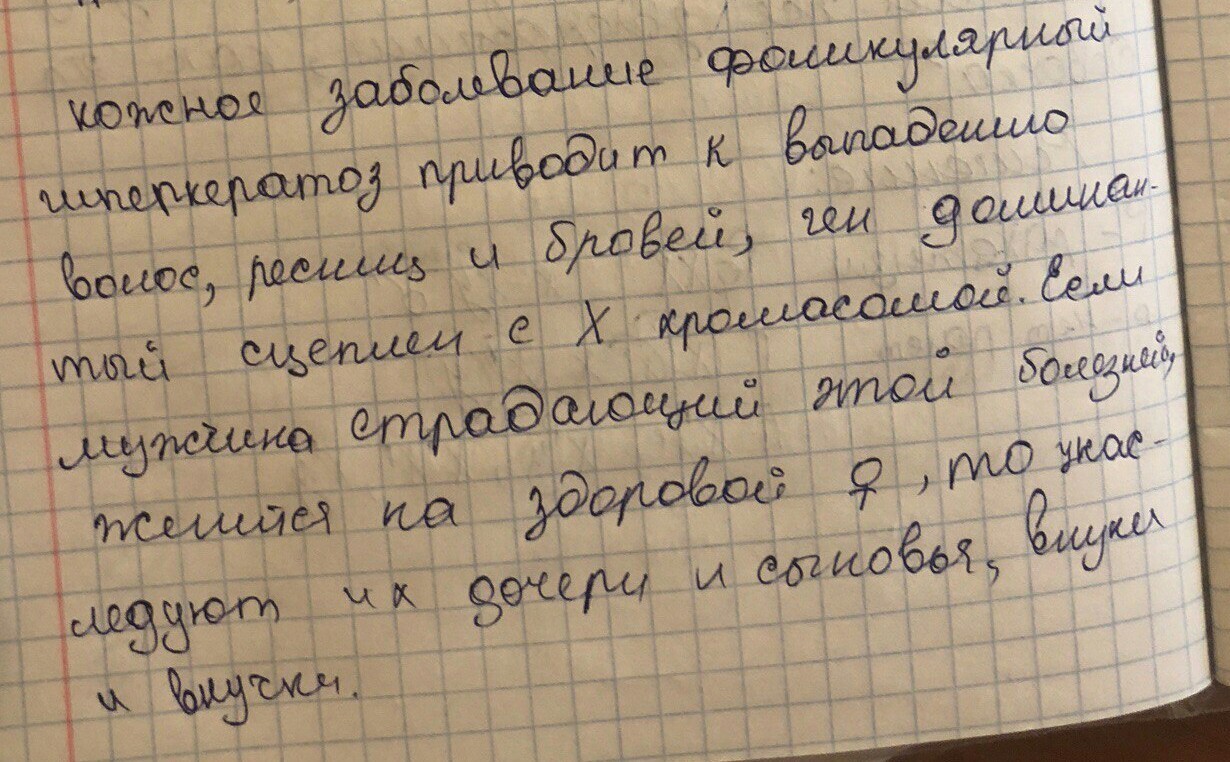 кожное заболевание фоликулярный
гиперкератоз приводит к выпадению
волос, ресниц и бровей, ген доминан-
тый сцеплен с X хромасомой. Если
мужчина страдающий этой болезней,
женится на здоровой ♀, то унас-
ледуют их дочери и сыновья, внуки
и внучки.